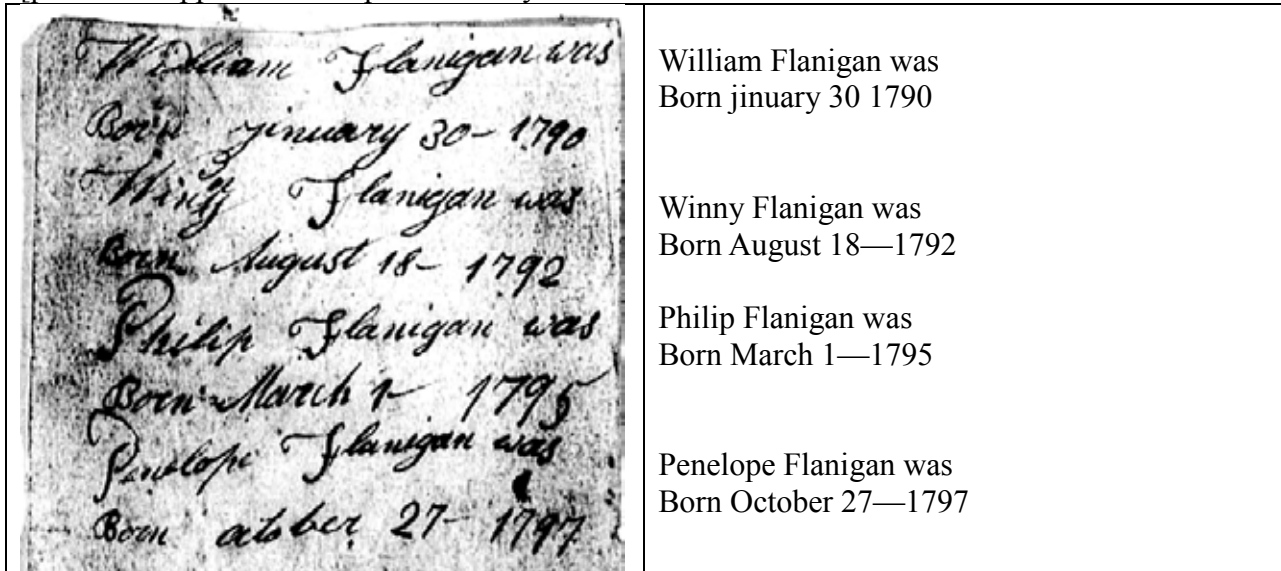 William Flanigan was
Born jinuary 30 - 1790
Winy Flanigan was
Born August 18 - 1792
Philip Flanigan was
Born March 1 - 1795
Penelope Flanigan was
Born octo ber 27 - 1797
William Flanigan was
Born jinuary 30 1790
Winny Flanigan was
Born August 18—1792
Philip Flanigan was
Born March 1—1795
Penelope Flanigan was
Born October 27—1797